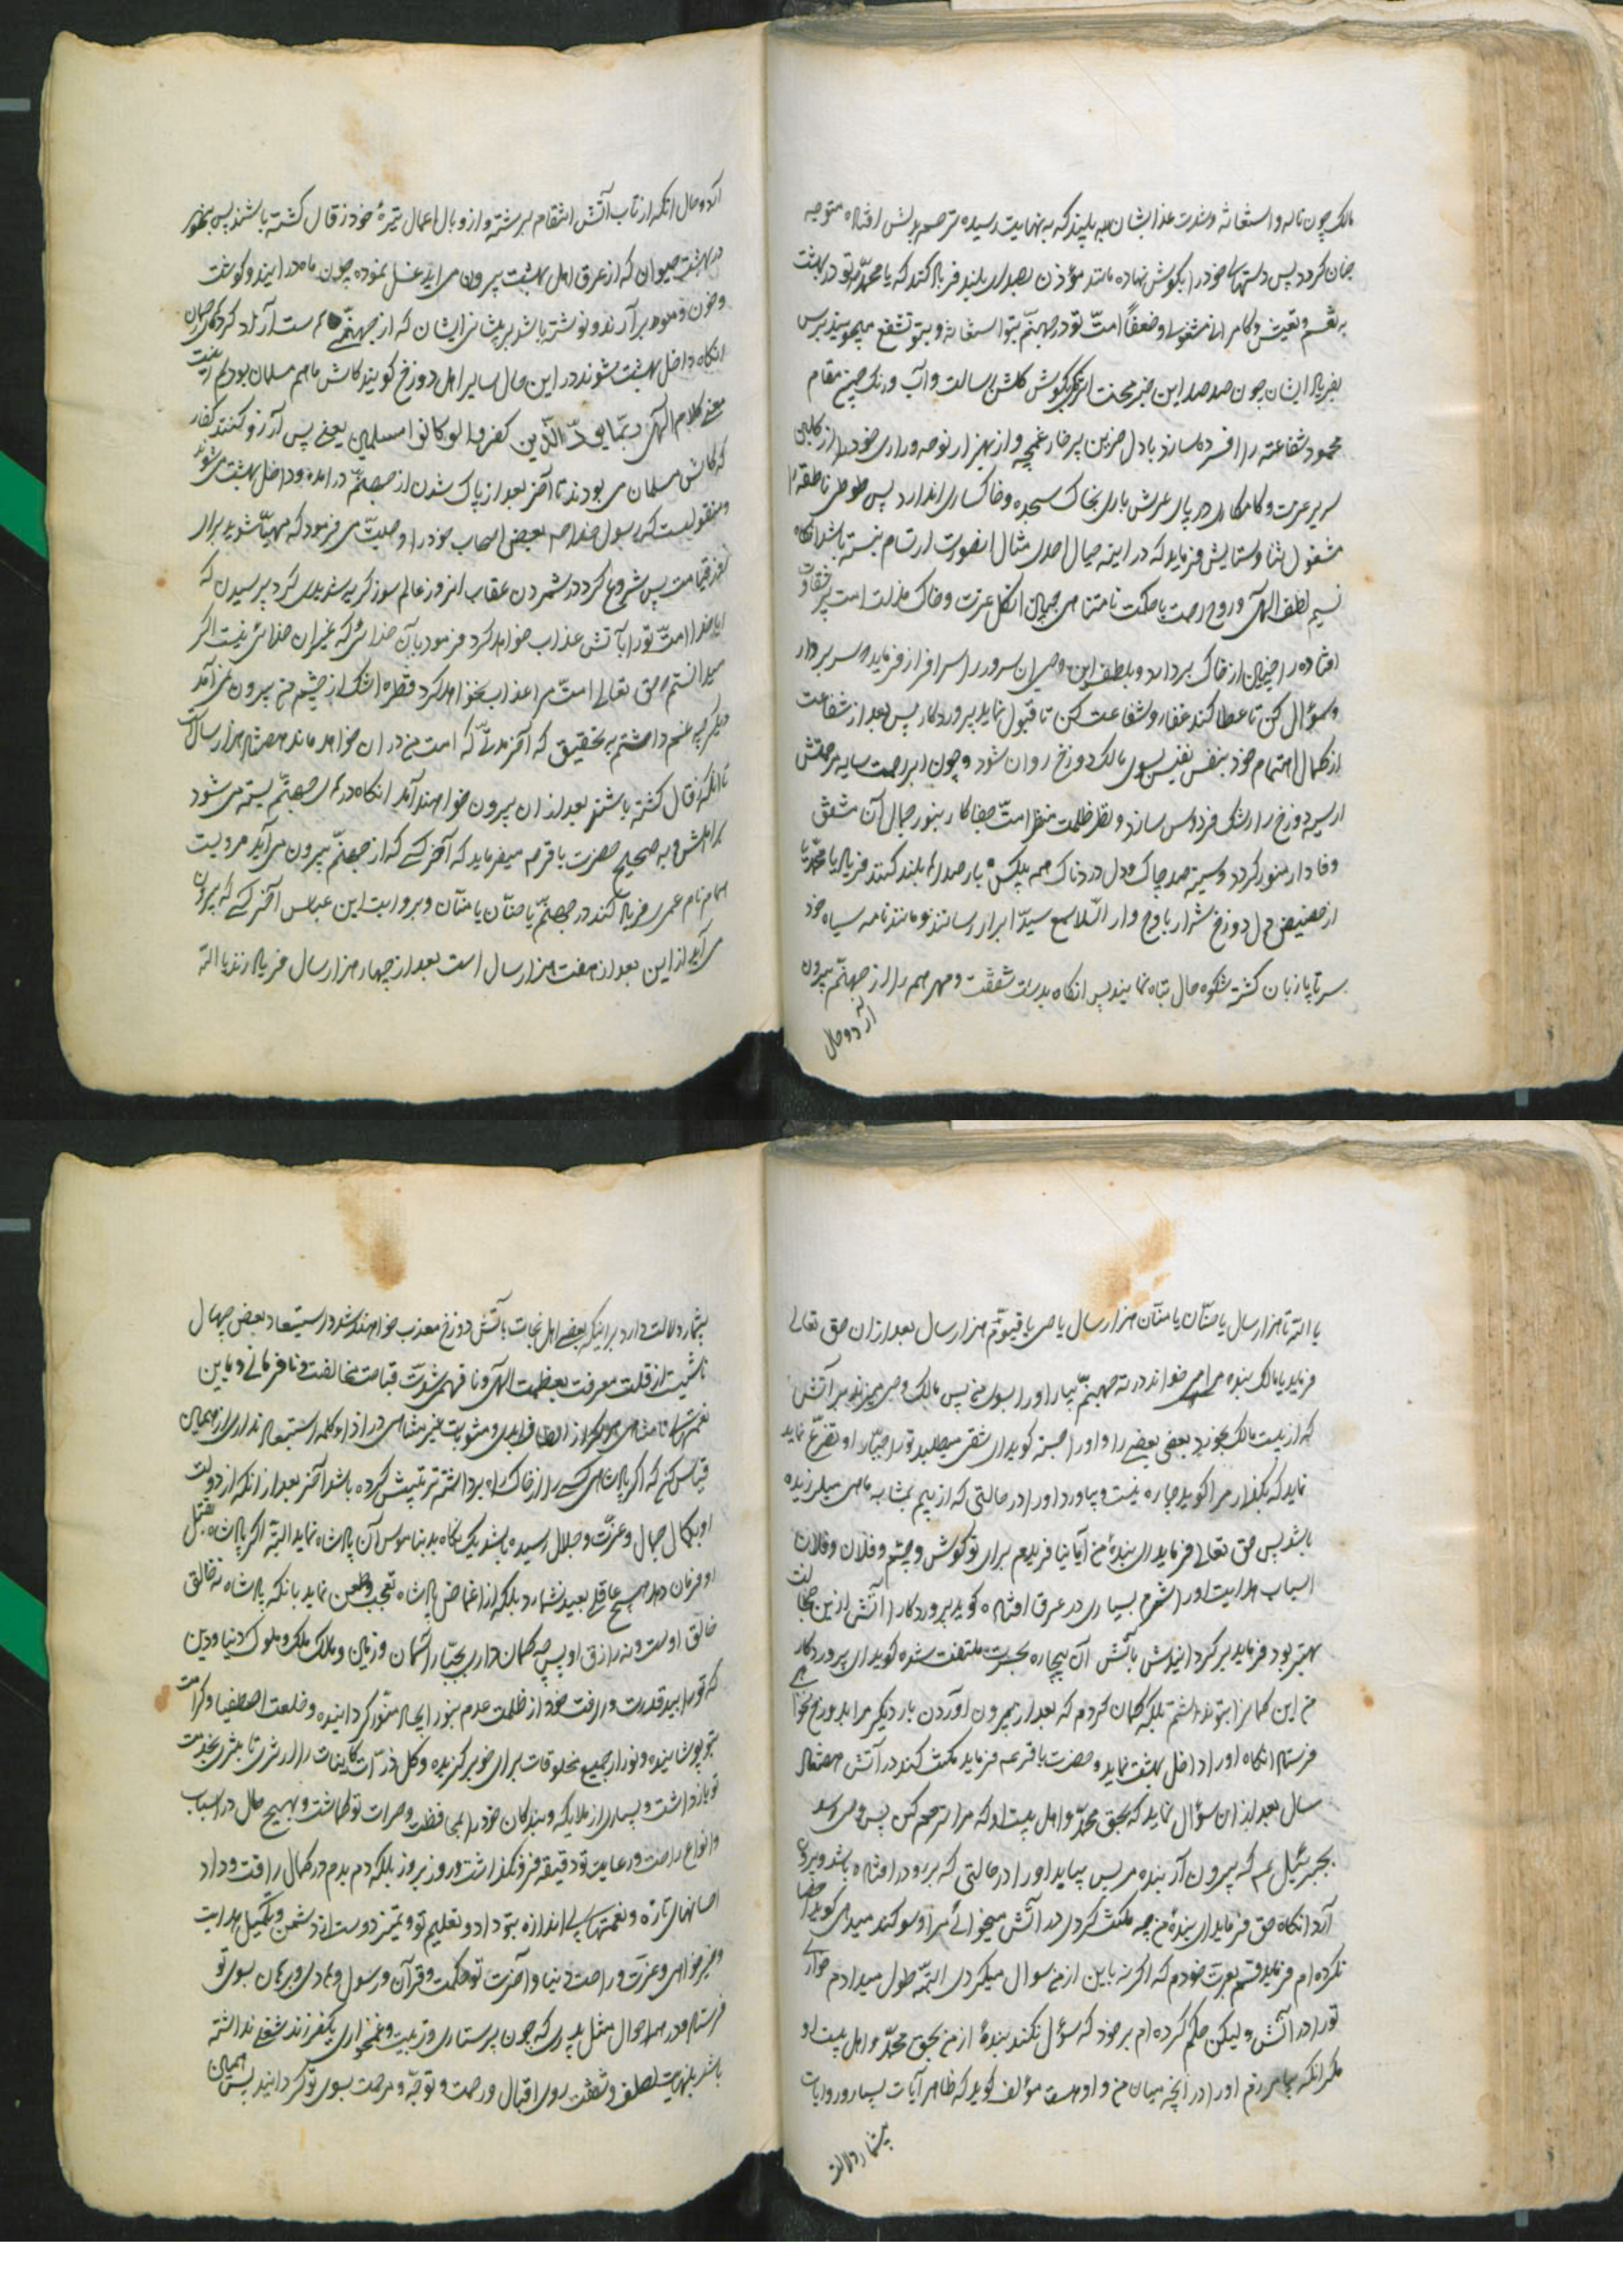 مالک چون ناله و استغاثه و شدت عذابشان به بیند که به نهایت رسیده ترحم بدلش افتاده متوجه
جنان کردد پس دستهای خود را بکوش نهاده مانند مؤذن بصدای بلند فریاد کند که یا محمد تو در بهشت
به تنعم و تعیش و کامرانی مشغول و ضعفاً امتّ تو در جهنّم بتو استغاثه و بتو تشفع میجویند برس
بفریاد ایشان چون صدصد این خبر محنت اثر بکوش کلشن رسالت و آب و رنک چمن مقام
محمود شفاعته را افسرده سازد با دل حزین پر خار غمچه و از بهزار نوحه و زاری خود را از
سریر عزت و کامکاری در پای عرش باری بخاک سجده و خاکساری اندازد پس طوطی ناطقه
مشغول بثنا و ستایش فرماید که در اینه خیال احدی مثال انصورت ارتسام نبسته باشد انکاه
نسیم لطف الهی و روح رحمت با حکمت نامتناهی جهان انکل عزت و خاک مذلت امت پر شقاوت
افتاده را از خاک بردارد و بلطف این وحی ان سرور را سرافراز فرماید سر بردار
و سؤال کن تا عطا کند غفار و شفاعت کن تا قبول نماید پروردکار پس بعد از شفاعت
از کمال اهتمام خود بنفس نفیس بسوی مالک دوزخ روان شود و چون ابر رحمت سایه مرحمتش
ارسیه دوزخ را رشک فردوس سازد و نظر ظلمت منظر امت جفا کار بنور جمال آن مشفق
وفادار منور کردد و سینه صد چاک و دل دردناک همه بیکبار صدا بلند کنند فریاد یا محمد یا
از حضیض دل دوزخ شرار باوج وار السلام سیّد ابرار رسانند و مانند نامه سیاه خود
سرتا پا زبان کشته شکوه حال تباه نمایند پس انکاه بدست شفقت و مهر همه را از جهنّم بیرون
آرد و حال
آرد و حال انکه از تاب آتش انتقام برشته و از وبال اعمال تیرهٔ خود زقال کشته باشند پس بنهر
در بهشت حیوان که از عرق اهل بهشت بیرون می اید غسل نموده چون ماه در ایند و کوشت
و خون و موی برآرند و نوشته باشد بر پیشانی ایشان که از جهنّم است آزاد کرده‌های رحمان
انکاه داخل بهشت شوند در این حال سایر اهل دوزخ کویند کاش ما هم مسلمان بودیم اینست
معنی کلام الهی ربّما یودّ الّذین کفروا لو کانوا مسلمین یعنی پس آرزو کنند کفار
که کاش مسلمان می بودند تا آخر بعد از پاک شدن از جهنّم در امده و داخل بهشت می شوند
و منقولست که رسول خدا ص بعضی اصحاب خود را وصیّت می فرمود که مهیّا شوید برای
سفر قیامت پس شروع کرد در شمردن عقاب انروز عالم سوز کریه شدیدی کرد پرسیدن که
ایا خدا امتّ تو را بآتش عذاب خواهد کرد فرمود بآن خدائی که غیر ان خدائی نیست اکر
میدانستم حق تعالی امتّ مرا عذاب نخواهد کرد قطره اشک از چشم من بیرون نمی آمد
دیکر چه غم داشتم به تحقیق که آخر مدّت که امت من در ان خواهد ماند هشتاد هزار سالست
تا انکه زقال کشته باشند بعد از ان بیرون خواهند آمد انکاه در جهنّم بسته می شود
بر اهلش و به صحیح حضرت باقر ع میفرماید که آخر کسی که از جهنّم بیرون می آید مردیست
همام نام عمری فریاد کند در جهنّم یا حنّان یا منّان و بروایت ابن عباس آخر کسی که بیرون
می آید از این بعد از هفت هزار سال است بعد از چهار هزار سال فریاد زند یا الله
یا الله تا هزار سال یا حنّان یا منّان هزار سال یا حی یا قیّوم هزار سال بعد از ان حق تعالی
فرماید یا مالک بنده مرا می خواند در ته جهنّم بیار او را بسوی من پس مالک
که از مالک بخورد بعضی بعضی را و او را جسته کوید ای شقی میطلبد تو را جبّار او تضرّع نماید
نماید که بکذار مرا کوید چاره نیست و بیاورد او را در حالتی که از بیم بمثابه ماهی میلرزیده
باشد پس حق تعالی فرماید ای بندهٔ من آیا نیافریدم برای تو کوش و چشم و فلان و فلان
اسباب هدایت او را شرم بسیاری در عرق افتاده کوید پروردکارا آتش از این خجالت
بهتر بود فرماید برکردانیدش باتش آن بیچاره بحسرت ملتفت شده کوید ای پروردکار
من این کمان بتو نداشتم بلکه کمان کردم که بعد از بیرون اوردن بار دیکر مرا بدوزخ نخواهی
فرستاد انکاه او را داخل بهشت نماید و حضرت باقر ع فرماید مکث کند در آتش هفتاد
سال بعد از ان سؤال نماید که بحق محمدّ و اهل بیت او که مرا ترحم کن پس وحی رسد
بجبرئیل ع که بیرون آر بنده مرا پس بیاید او را در حالتی که برو در افتاده باشد و بیرون
آرد انکاه حق فرماید ای بندهٔ من چه مکث کردی در آتش میخوانی مرا و سوکند میدهی کوید
نکرده ام فرماید قسم بعزت خودم که اکر نه باین از من سوال میکردی البتّه طول میدادم خواری
تو را در آتش و لیکن حکم کرده ام بر خود که سؤل نکند بندهٔ از من بحق محمدّ و اهل بیت او
مکر انکه بیامرزم او را در آنچه میان من و او هست مؤلف کوید که ظاهر آیات بسیار و روایات
بیشمار دلالت
بیشمار دلالت دارد بر اینکه بعضی اهل نجات باتش دوزخ معذب خواهند شد و استبعاد بعض جهال
ناشیست از قلت معرفت بعظمت الهی و نافهمی شدّت قباحت مخالفت و نافرمانی و باین
نعمتهای نامتناهی و مثوبات غیر متناهی در اذا کلمه استبعاد نداری از همین
قیاس کن که اکر پادشاهی کسی را از خاک راه برداشته تربیتش کرده باشد آخر بعد از انکه از دولت
او بکمال جمال و عزّت و جلال رسیده باشد یک نکاه بد بناموس آن پادشاه نماید البتّه اکر پادشاه بقتل
او فرمان دهد هیچ عاقلی بعید نشمارد بلکه از اغماض پادشاه تعجب و طعن نماید بانکه پادشاه نه خالق
خالق اوست و نه رازق او پس چه کمان داری بجبّار آسمان و زمین و مالک ملک و ملوک دنیا و دین
که تو را بید قدرت و رافت خود از ظلمت عدم بنور ایجاد منّور کردانیده و خلعت اصطفا و کرامت
بتو پوشانیده و تو را از جمیع مخلوقات برای خود برکزیده و کل ذرّات کاینات را از ثری تا بثریا بخدمت
تو بازداشت و بسیاری از ملایکه و بندکان خود را بمحافظت و حراست تو کماشت و بهیچ حال در اسباب
و انواع راحت و رعایت تو دقیقه فرو نکذاشت و روز بروز بلکه دم بدم در کمال رافت و وداد
احسانهای تازه و نعمتهای بی اندازه بتو داد و تعلیم تو و تمیز دوست از دشمن و تکمیل هدایت
و خیر خواهی و عزت و راحت دنیا و آخرت تو حکمت و قرآن و رسول و هادی و برهان بسوی تو
فرستاد و در همه احوال مثل پدری که چون پرستاری و تربیت و غمخواری یکفرزند شغلی نداشته
باشد بنهایت لطف و شفقت روی اقبال و رحمت و توجّه و مرحمت بسوی تو کرداند پس همین